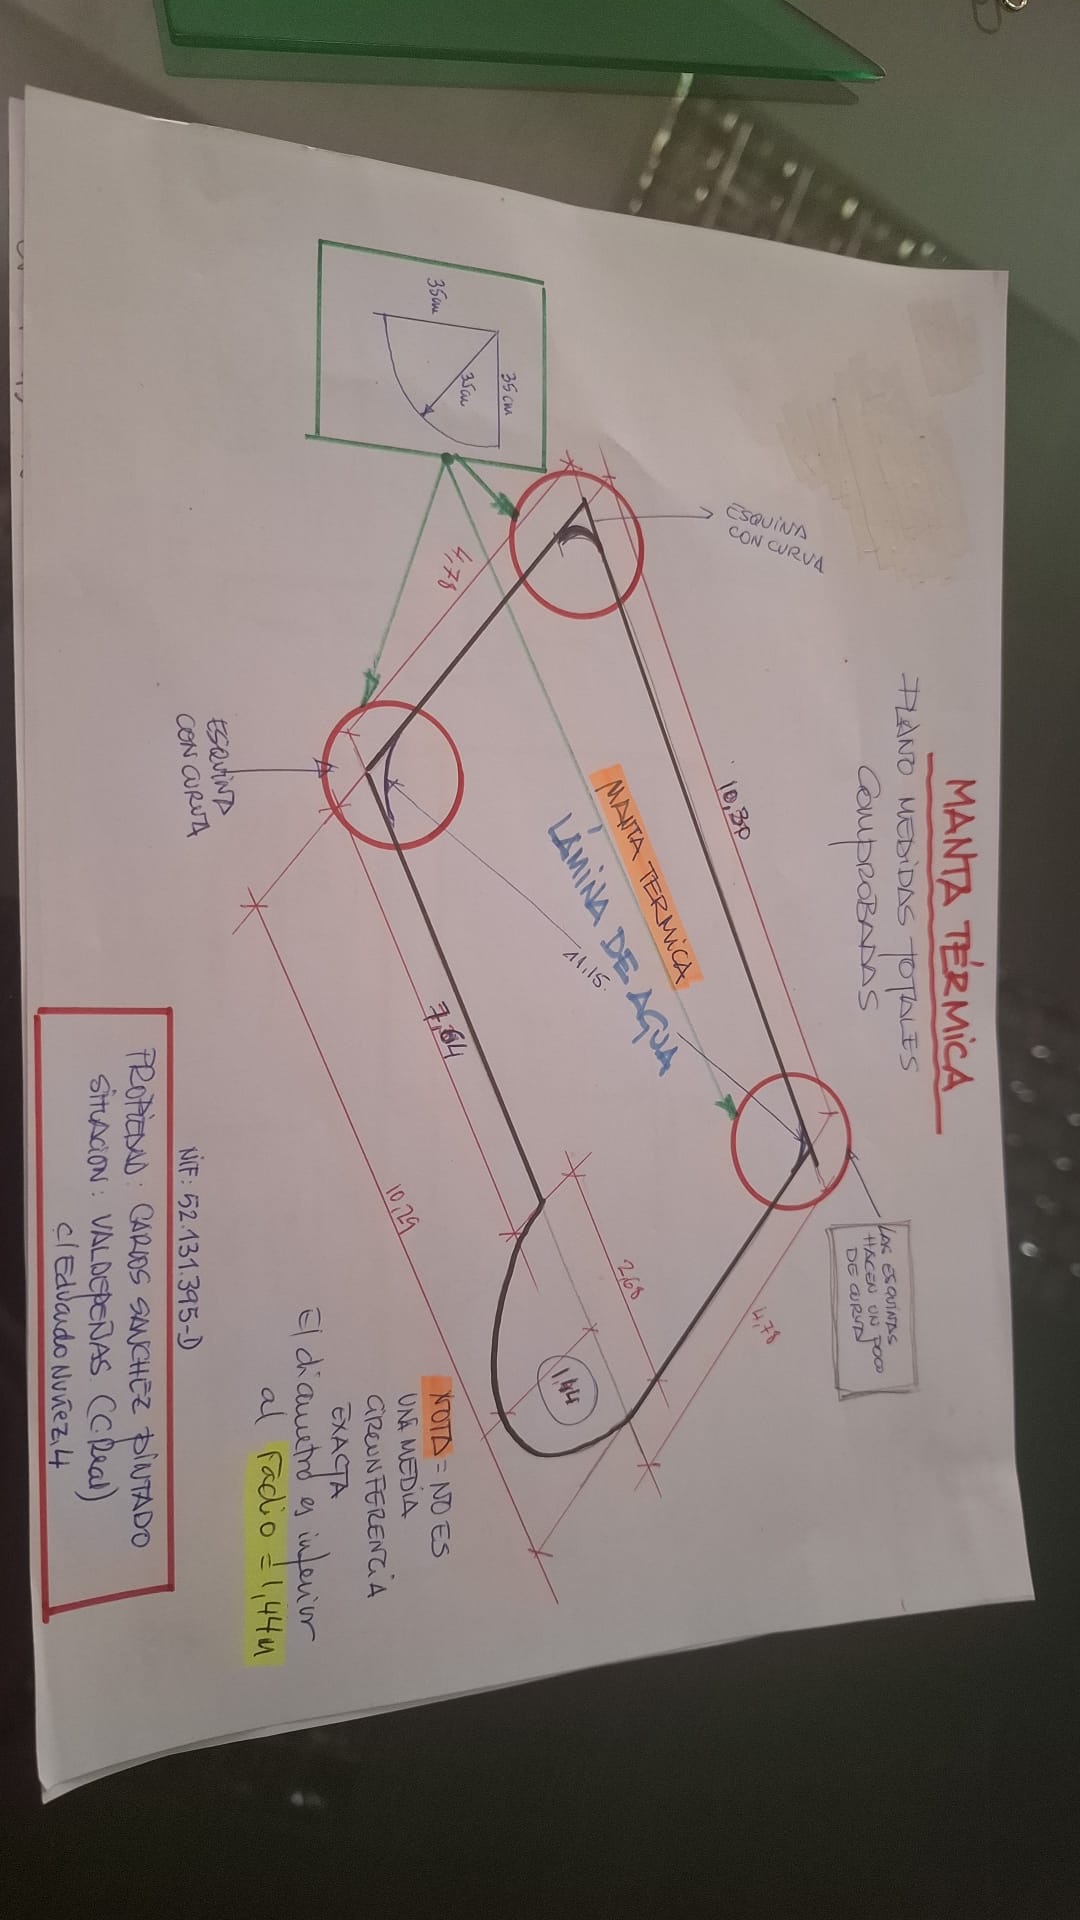 MANTA TÉRMICA
PLANO MEDIDAS TOTALES
COMPROBADAS
ESQUINA
CON CURVA
10,30
LAS ESQUINAS
HACEN UN POCO
DE CURVA
35 cm
35cm
35cm
4,78
MANTA TERMICA
LÁMINA DE AGUA
11,15.
4,78
ESQUINA
CON CURVA
7,64
2,68
1,44
10,29
NOTA = NO ES
UNA MEDIA
CIRCUNFERENCIA
EXACTA
El diametro es inferior
al radio = 1,44m
NIF: 52.131.395-D
PROPIEDAD: CARLOS SANCHEZ PINTADO
SITUACION: VALDEPEÑAS. (C.Real)
C/ Eduardo Nuñez, 4